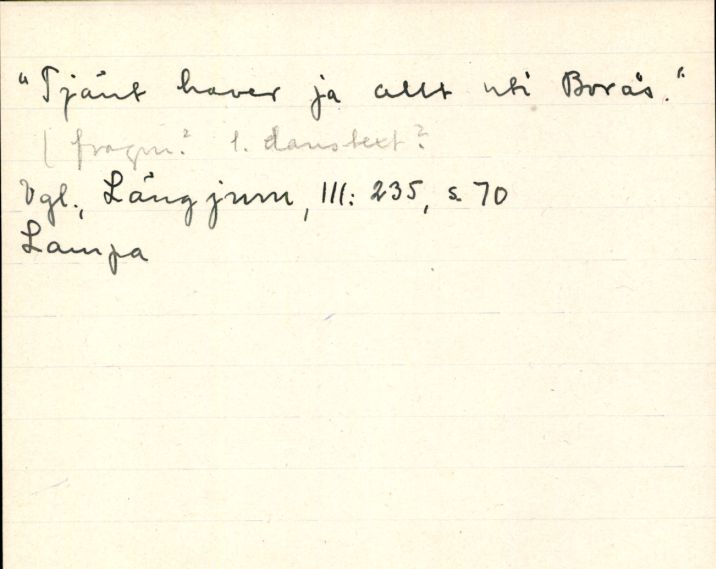 "Tjänt haver ja allt uti Borås."
( fragm? l. danstext?
Vgl., Längjum, III: 235, s. 70
Lampa